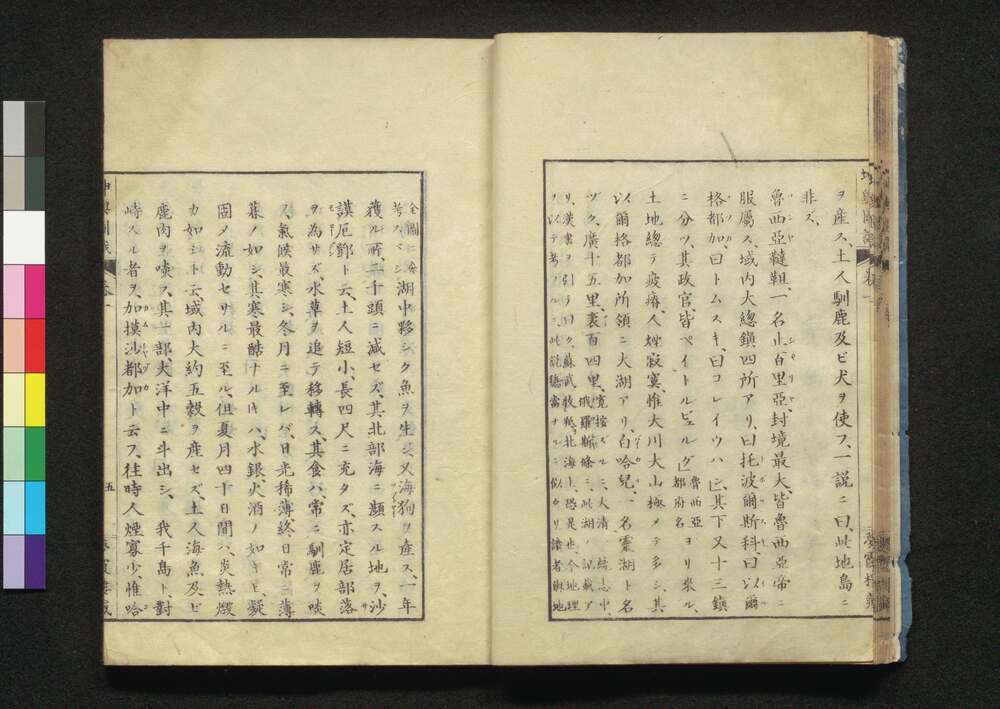 ヲ産ス、土人馴鹿及ビ犬ヲ使フ、一説ニ曰、此地島ニ
非ズ、
魯西亞韃靼、一名止百里亞、封境最大、皆魯西亞帝ニ
服屬ス、域内大總鎮四所アリ、曰托波爾斯科、曰以爾
格都加、曰トムスキ、曰コレイツハ、其下又十三鎮
ニ分ツ、其政官、皆ペイトルビュルグ 魯西亞都府名 ヨリ來ル、
土地總テ疫瘠、人煙寂寞、惟大川大山極メテ多シ、其
以爾格都加所領ニ大湖アリ、白哈兒、一名靈湖ト名
ヅク、廣十五里、袤百四里、寛按ズルニ、大清一統志中、
俄羅斯條ニ、此湖ノ記載ア
リ、漢書ヲ引テ曰ク、蘇武牧羝北海上、恐是也、今地理
ヲ以テ考フルニ、此説穩當ナルニ似タリ、讀者輿地
全圖ニ
考スベシ
湖中夥シク魚ヲ生シ、又海狗ヲ産ス、一年
獲ル所、二千頭ニ減セズ、其北部海ニ瀕スル地ヲ、沙
謨厄鄂ト云、土人短小、長四尺ニ充タズ、亦定居部落
ヲ為サズ、水草ヲ追テ移轉ス、其食ハ、常ニ馴鹿ヲ啖
ス、氣候最寒シ、冬月ニ至レバ、日光稀薄、終日常ニ薄
暮ノ如シ、其寒最酷ナルトキハ、水銀、火酒ノ如キモ、凝
固メ流動セサルニ至ル、但夏月四十日間ハ、炎熱燬
カ如シト云、域内大約五穀ヲ産セズ、土人海魚及ビ
鹿肉ヲ啖フ、其一部、大洋中ニ斗出シ、我千島ト、對
峙スル者ヲ、加摸沙都加ト云フ、往時人煙寡少、惟哈
五